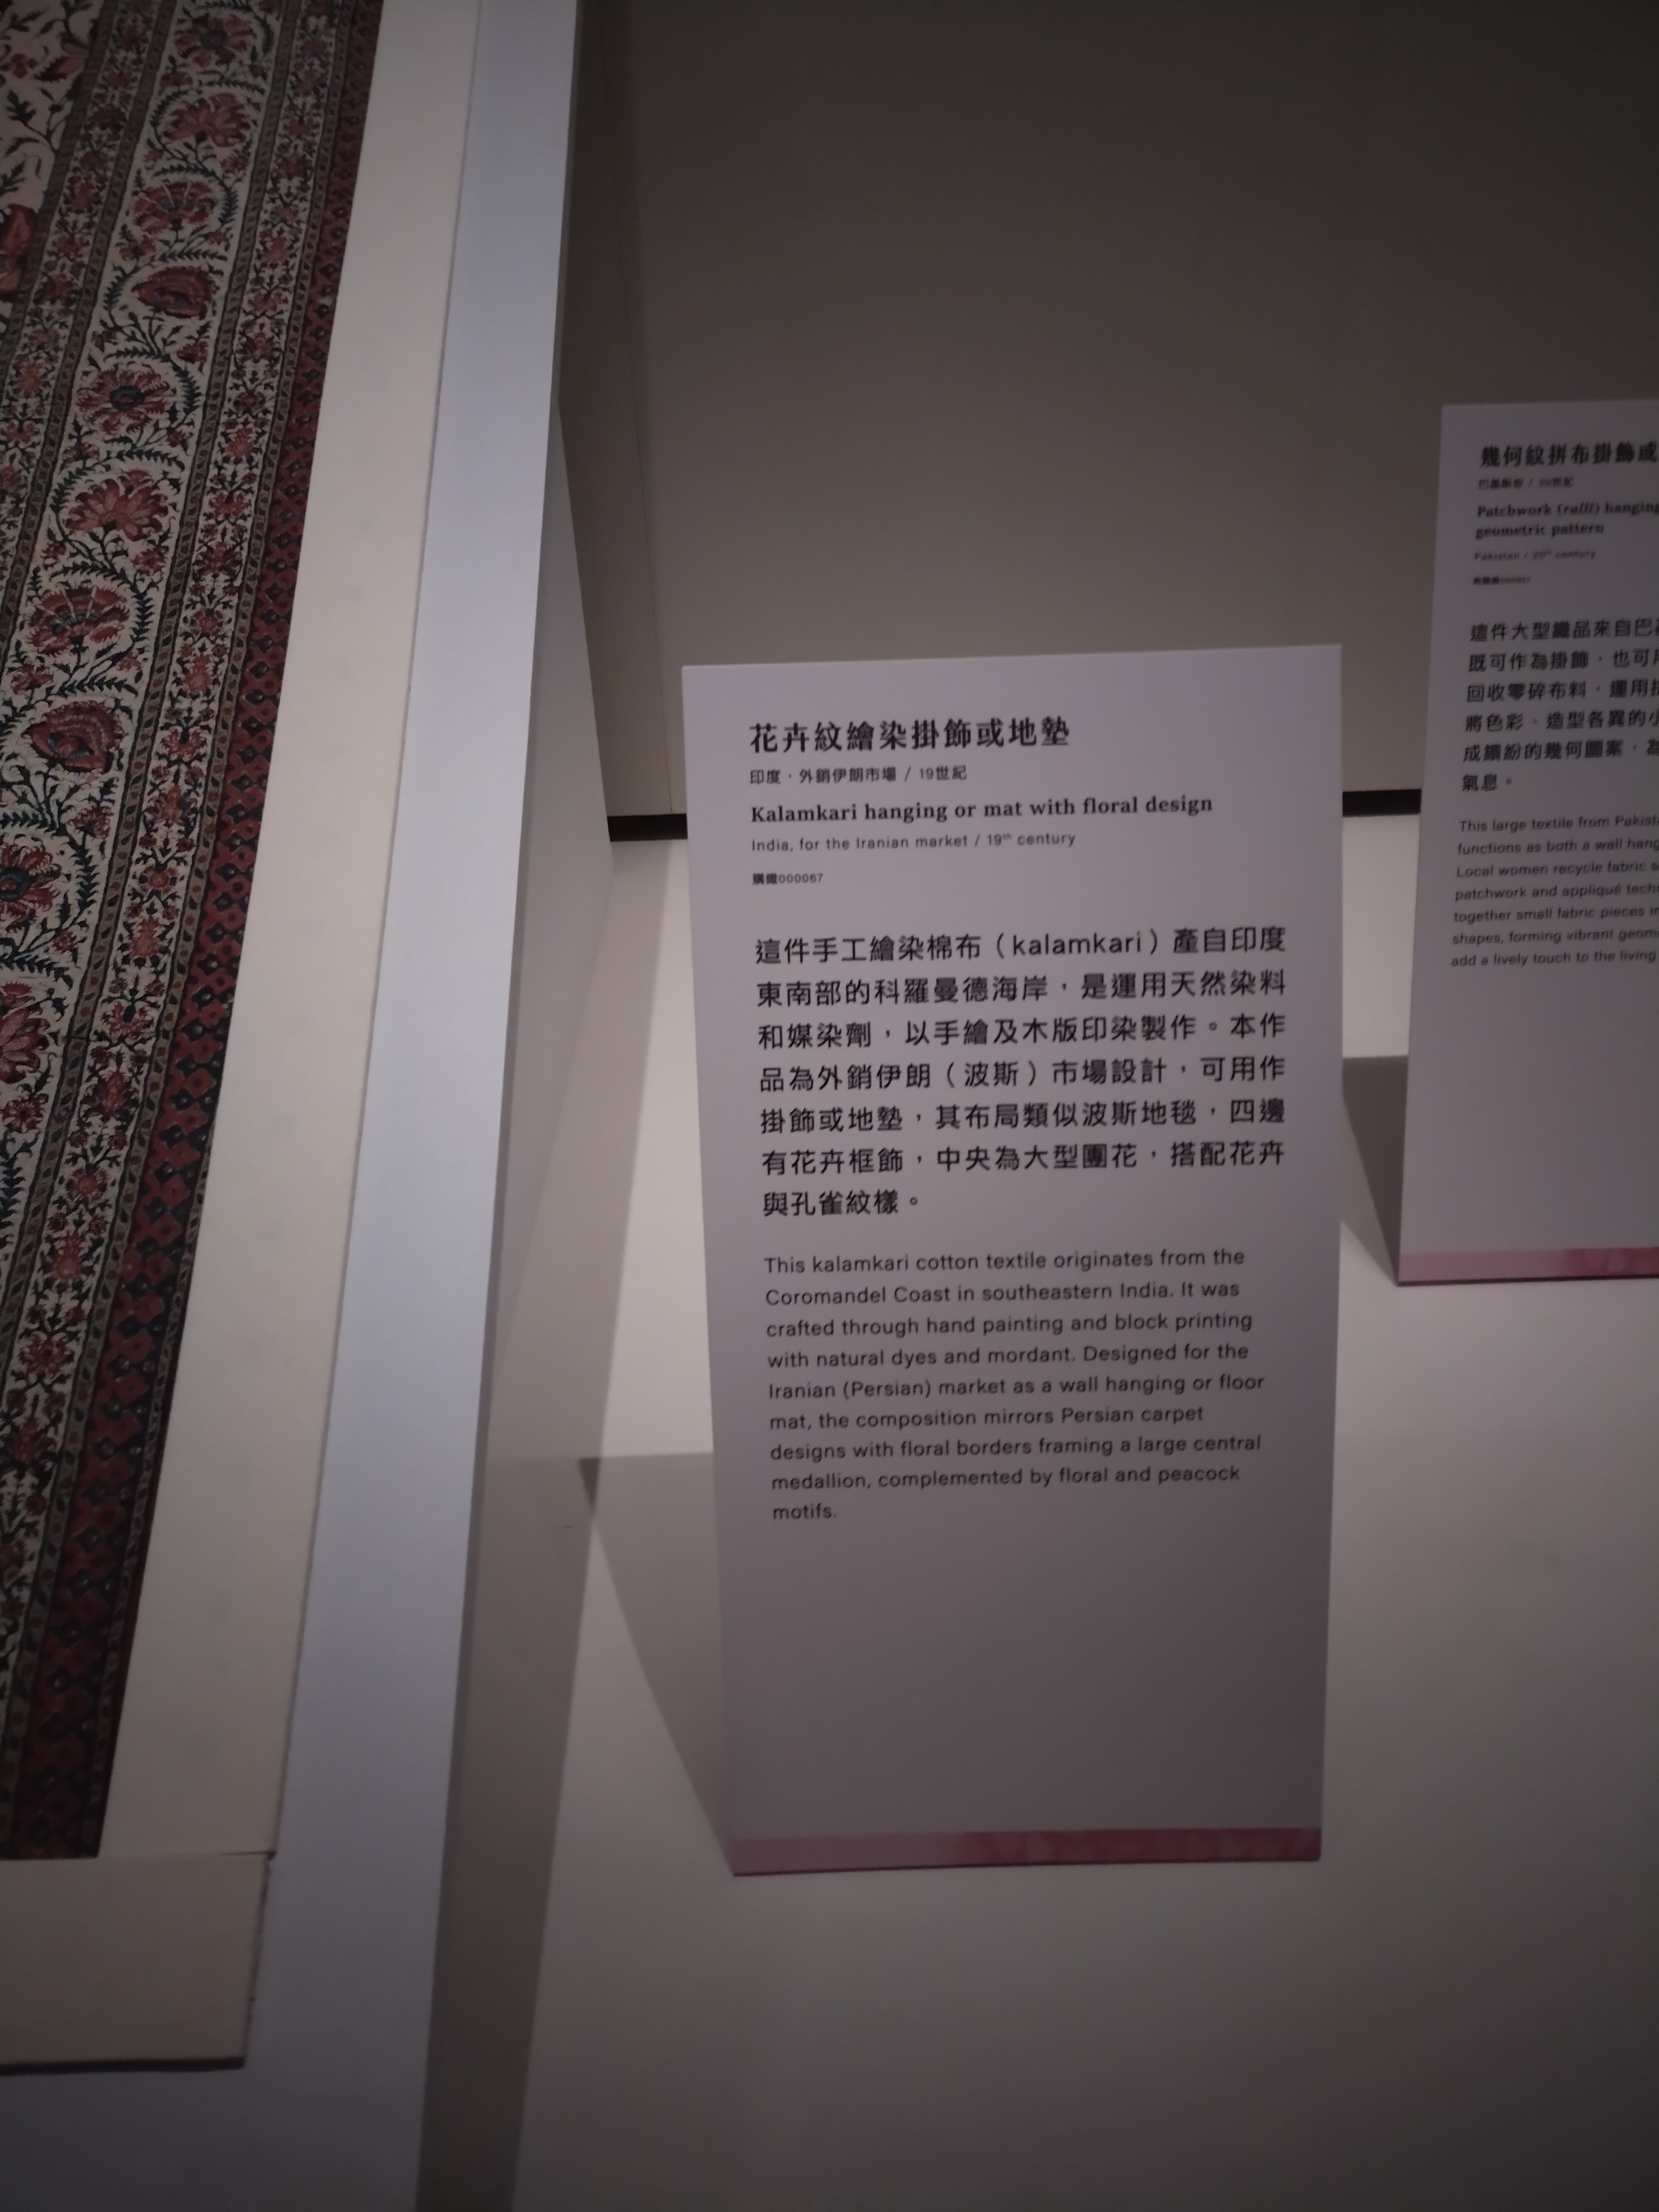 花卉紋繪染掛飾或地墊
印度，外銷伊朗市場 / 19世紀
Kalamkari hanging or mat with floral design
India, for the Iranian market / 19th century
購織000067
這件手工繪染棉布（kalamkari）產自印度
東南部的科羅曼德海岸，是運用天然染料
和媒染劑，以手繪及木版印染製作。本作
品為外銷伊朗（波斯）市場設計，可用作
掛飾或地墊，其布局類似波斯地毯，四邊
有花卉框飾，中央為大型團花，搭配花卉
與孔雀紋樣。
This kalamkari cotton textile originates from the
Coromandel Coast in southeastern India. It was
crafted through hand painting and block printing
with natural dyes and mordant. Designed for the
Iranian (Persian) market as a wall hanging or floor
mat, the composition mirrors Persian carpet
designs with floral borders framing a large central
medallion, complemented by floral and peacock
motifs.
幾何紋拼布掛飾或
巴基斯坦 / 20世紀
Patchwork (ralli) hanging
geometric pattern
Pakistan / 20th century
這件大型織品來自巴
既可作為掛飾，也可
回收零碎布料，運用
將色彩、造型各異的小
成繽紛的幾何圖案，為
氣息。
This large textile from
functions as both a wall
Local women recycle fabric
patchwork and appliqué
together small fabric pieces
shapes, forming vibrant
add a lively touch to the living